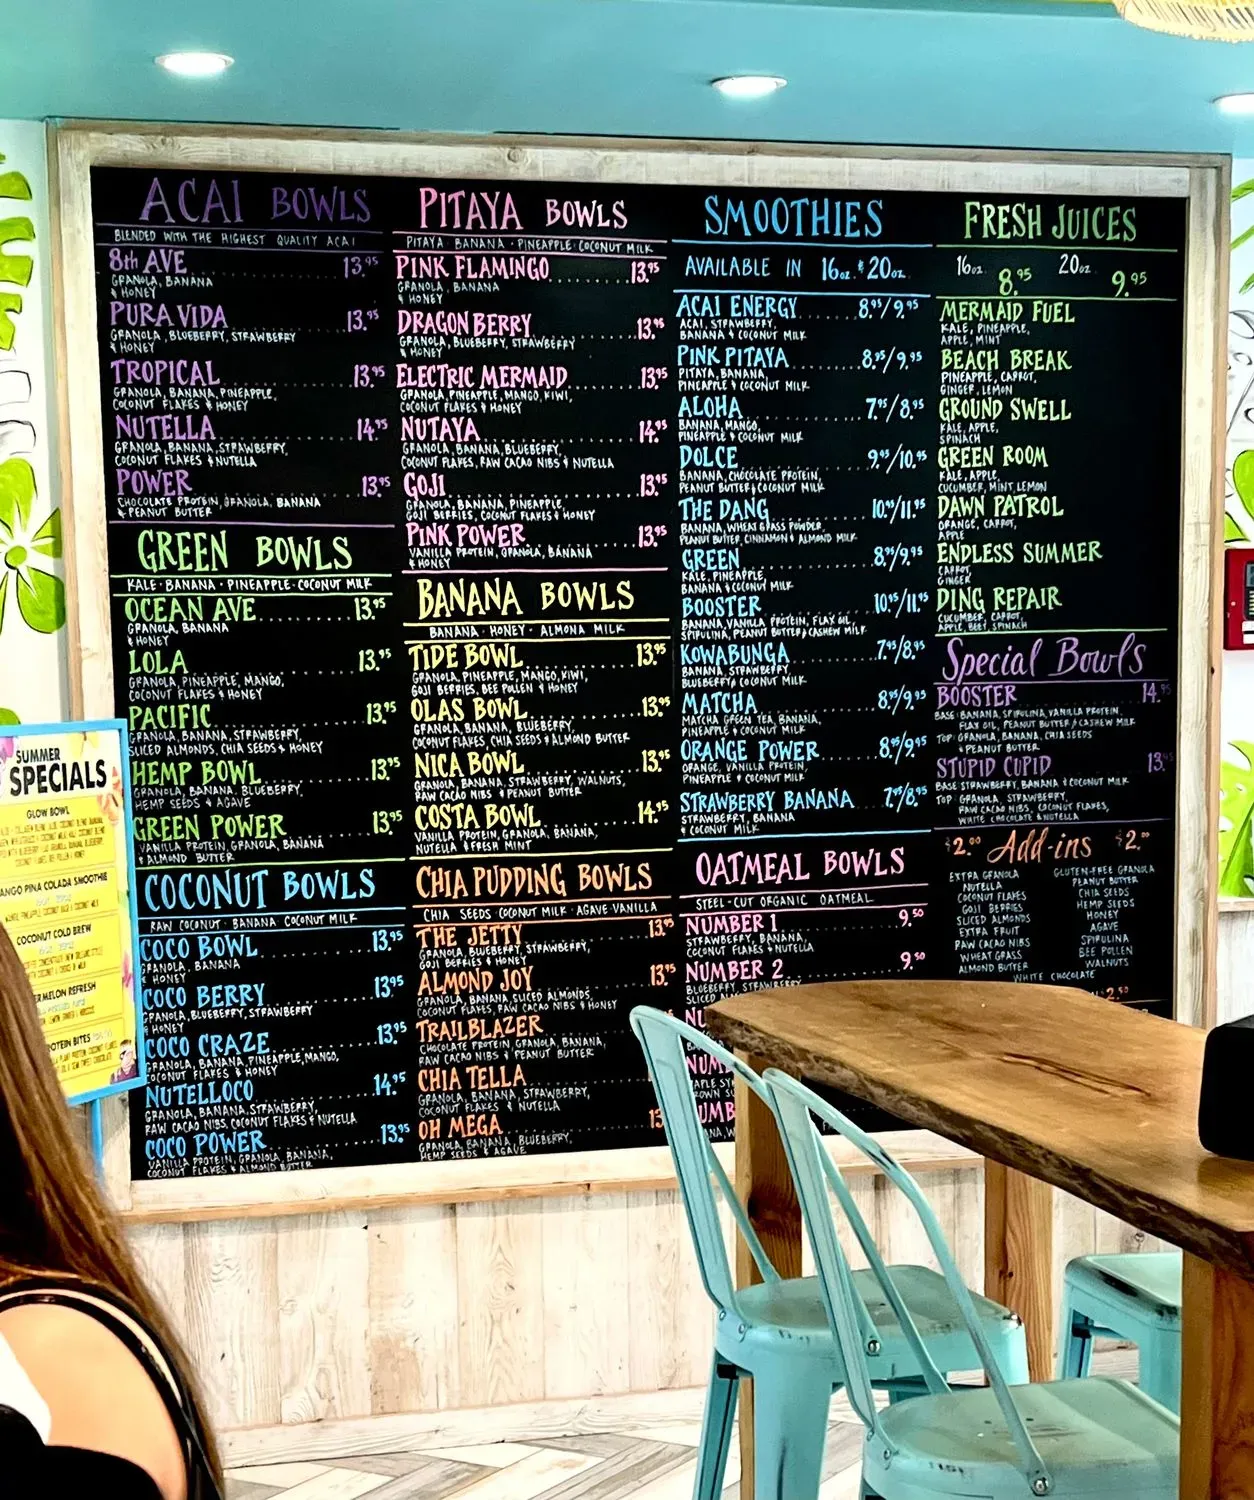 ACAI BOWLS
BLENDED WITH THE HIGHEST QUALITY ACAI
8th AVE 13.95
GRANOLA, BANANA
& HONEY
PURA VIDA 13.95
GRANOLA, BLUEBERRY, STRAWBERRY
& HONEY
TROPICAL 13.95
GRANOLA, BANANA, PINEAPPLE,
COCONUT FLAKES & HONEY
NUTELLA 14.95
GRANOLA, BANANA, STRAWBERRY,
COCONUT FLAKES & NUTELLA
POWER 13.95
CHOCOLATE PROTEIN, GRANOLA, BANANA
& PEANUT BUTTER
GREEN BOWLS
KALE · BANANA · PINEAPPLE · COCONUT MILK
OCEAN AVE 13.95
GRANOLA, BANANA
& HONEY
LOLA 13.95
GRANOLA, PINEAPPLE, MANGO,
COCONUT FLAKES & HONEY
PACIFIC 13.95
GRANOLA, BANANA, STRAWBERRY,
SLICED ALMONDS, CHIA SEEDS & HONEY
HEMP BOWL 13.95
GRANOLA, BANANA, BLUEBERRY,
HEMP SEEDS & AGAVE
GREEN POWER 13.95
VANILLA PROTEIN, GRANOLA, BANANA
& ALMOND BUTTER
COCONUT BOWLS
RAW COCONUT · BANANA COCONUT MILK
COCO BOWL 13.95
GRANOLA, BANANA
& HONEY
COCO BERRY 13.95
GRANOLA, BLUEBERRY, STRAWBERRY
& HONEY
COCO CRAZE 13.95
GRANOLA, BANANA, PINEAPPLE, MANGO,
COCONUT FLAKES & HONEY
NUTELLOCO 14.95
GRANOLA, BANANA, STRAWBERRY,
RAW CACAO NIBS, COCONUT FLAKES & NUTELLA
COCO POWER 13.95
VANILLA PROTEIN, GRANOLA, BANANA,
COCONUT FLAKES & ALMOND BUTTER
PITAYA BOWLS
PITAYA · BANANA · PINEAPPLE · COCONUT MILK
PINK FLAMINGO 13.95
GRANOLA, BANANA
& HONEY
DRAGON BERRY 13.95
GRANOLA, BLUEBERRY, STRAWBERRY
& HONEY
ELECTRIC MERMAID 13.95
GRANOLA, PINEAPPLE, MANGO, KIWI,
COCONUT FLAKES & HONEY
NUTAYA 14.95
GRANOLA, BANANA, BLUEBERRY,
COCONUT FLAKES, RAW CACAO NIBS & NUTELLA
GOJI 13.95
GRANOLA, BANANA, PINEAPPLE,
GOJI BERRIES, COCONUT FLAKES & HONEY
PINK POWER 13.95
VANILLA PROTEIN, GRANOLA, BANANA
& HONEY
BANANA BOWLS
BANANA · HONEY · ALMONA MILK
TIDE BOWL 13.95
GRANOLA, PINEAPPLE, MANGO, KIWI,
GOJI BERRIES, BEE POLLEN & HONEY
OLAS BOWL 13.95
GRANOLA, BANANA, BLUEBERRY,
COCONUT FLAKES, CHIA SEEDS & ALMOND BUTTER
NICA BOWL 13.95
GRANOLA, BANANA, STRAWBERRY, WALNUTS,
RAW CACAO NIBS & PEANUT BUTTER
COSTA BOWL 14.95
VANILLA PROTEIN, GRANOLA, BANANA,
NUTELLA & FRESH MINT
CHIA PUDDING BOWLS
CHIA SEEDS · COCONUT MILK · AGAVE · VANILLA
THE JETTY 13.95
GRANOLA, BLUEBERRY, STRAWBERRY,
GOJI BERRIES & HONEY
ALMOND JOY 13.95
GRANOLA, BANANA, SLICED ALMONDS,
COCONUT FLAKES, RAW CACAO NIBS & HONEY
TRAILBLAZER
CHOCOLATE PROTEIN, GRANOLA, BANANA,
RAW CACAO NIBS & PEANUT BUTTER
CHIA TELLA
GRANOLA, BANANA, STRAWBERRY,
COCONUT FLAKES & NUTELLA
OH MEGA 13
GRANOLA, BANANA, BLUEBERRY,
HEMP SEEDS & AGAVE
SMOOTHIES
AVAILABLE IN 16oz. & 20oz.
ACAI ENERGY 8.95/9.95
ACAI, STRAWBERRY,
BANANA & COCONUT MILK
PINK PITAYA 8.95/9.95
PITAYA, BANANA,
PINEAPPLE & COCONUT MILK
ALOHA 7.95/8.95
BANANA, MANGO,
PINEAPPLE & COCONUT MILK
DOLCE 9.95/10.95
BANANA, CHOCOLATE PROTEIN,
PEANUT BUTTER & COCONUT MILK
THE DANG 10.95/11.95
BANANA, WHEATGRASS POWDER,
PEANUT BUTTER, CINNAMON & ALMOND MILK
GREEN 8.95/9.95
KALE, PINEAPPLE,
BANANA & COCONUT MILK
BOOSTER 10.95/11.95
BANANA, VANILLA PROTEIN, FLAX OIL,
SPIRULINA, PEANUT BUTTER & CASHEW MILK
KOWABUNGA 7.95/8.95
BANANA, STRAWBERRY,
BLUEBERRY & COCONUT MILK
MATCHA 8.95/9.95
MATCHA GREEN TEA, BANANA,
PINEAPPLE & COCONUT MILK
ORANGE POWER 8.95/9.95
ORANGE, VANILLA PROTEIN,
PINEAPPLE & COCONUT MILK
STRAWBERRY BANANA 7.95/8.95
STRAWBERRY, BANANA
& COCONUT MILK
OATMEAL BOWLS
STEEL-CUT ORGANIC OATMEAL
NUMBER 1 9.50
STRAWBERRY, BANANA,
COCONUT FLAKES & NUTELLA
NUMBER 2 9.50
BLUEBERRY, STRAWBERRY
SLICED
NU
NUM
UMB
FRESH JUICES
16oz. 8.95 20oz. 9.95
MERMAID FUEL
KALE, PINEAPPLE,
APPLE, MINT
BEACH BREAK
PINEAPPLE, CARROT,
GINGER, LEMON
GROUND SWELL
KALE, APPLE,
SPINACH
GREEN ROOM
KALE, APPLE,
CUCUMBER, MINT, LEMON
DAWN PATROL
ORANGE, CARROT,
APPLE
ENDLESS SUMMER
CARROT,
GINGER
DING REPAIR
CUCUMBER, CARROT,
APPLE, BEET, SPINACH
Special Bowls
BOOSTER 14.95
BASE: BANANA, SPIRULINA, VANILLA PROTEIN,
FLAX OIL, PEANUT BUTTER & CASHEW MILK
TOP: GRANOLA, BANANA, CHIA SEEDS
& PEANUT BUTTER
STUPID CUPID 13.95
BASE STRAWBERRY, BANANA & COCONUT MILK
TOP GRANOLA, STRAWBERRY,
RAW CACAO NIBS, COCONUT FLAKES,
WHITE CHOCOLATE & NUTELLA
$2.00 Add-ins $2.00
EXTRA GRANOLA
NUTELLA
COCONUT FLAKES
GOJI BERRIES
SLICED ALMONDS
EXTRA FRUIT
RAW CACAO NIBS
WHEAT GRASS
ALMOND BUTTER
GLUTEN-FREE GRANOLA
PEANUT BUTTER
CHIA SEEDS
HEMP SEEDS
HONEY
AGAVE
SPIRULINA
BEE POLLEN
WALNUTS
WHITE CHOCOLATE
2.50
SUMMER
SPECIALS
GLOW BOWL
ANGO PINA COLADA SMOOTHIE
COCONUT COLD BREW
ERMELON REFRESH
ROTEIN BITES